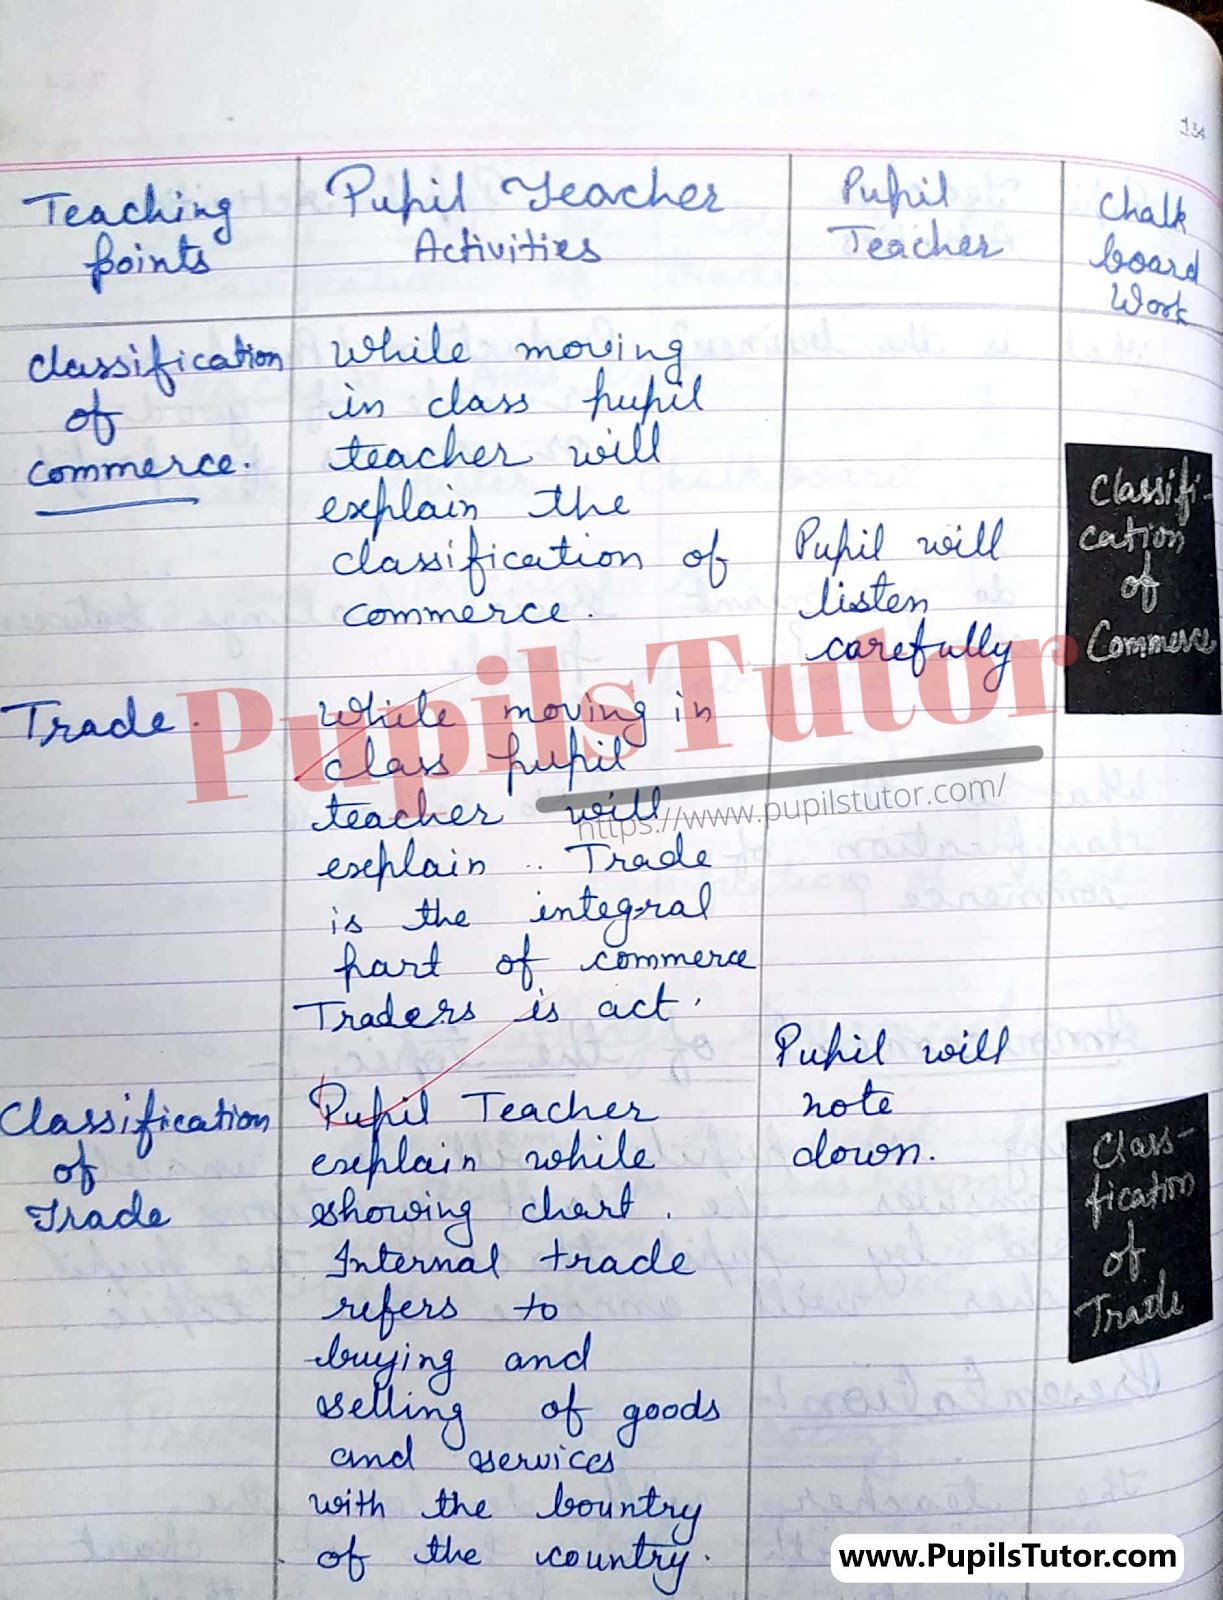 134
Teaching
points
Pupil Teacher
Activities
Pupil
Teacher
Chalk
board
Work
Classification
of
commerce.
While moving
in class pupil
teacher will
explain the
classification of
commerce.
Pupil will
listen
carefully
Classifi-
cation
of
Commerce
Trade.
While moving in
class pupil
teacher will
explain .. Trade
is the integral
part of commerce
Traders is act.
Classification
of
Trade
Pupil Teacher
explain while
showing chart.
Internal trade
refers to
buying and
selling of goods
and services
with the bountry
of the country.
Pupil will
note
down.
Class-
fication
of
Trade
PupilsTutor
https://www.pupilstutor.com/
www.PupilsTutor.com